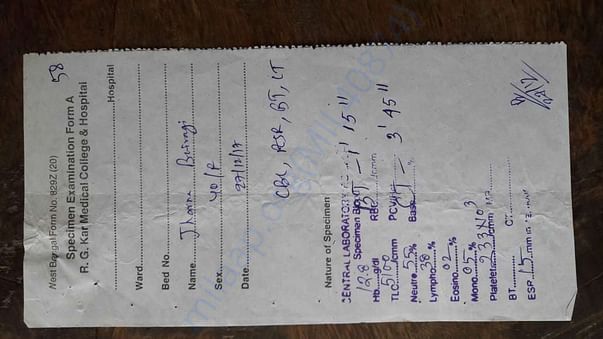 58
West Bengal Form No. 829Z (20)
Specimen Examination Form A
R. G. Kar Medical College & Hospital
Hospital
Ward
Bed No.
Name Jharna Bairagi
Sex 40/F
Date 27/12/17
CBC, ESR, BT, CT
Nature of Specimen
CENTRAL LABORATORY
Specimen
BT = 1' 15"
Hb 12.8 g/dl RBC /cmm
TLC 5100 /cmm PCV
CT = 3' 45"
Neutro 55 % Baso %
Lympho 38 %
Eosino 02 %
Mono 05 %
Platelet 233x10³ /cmm
BT CT
ESR 15 mm